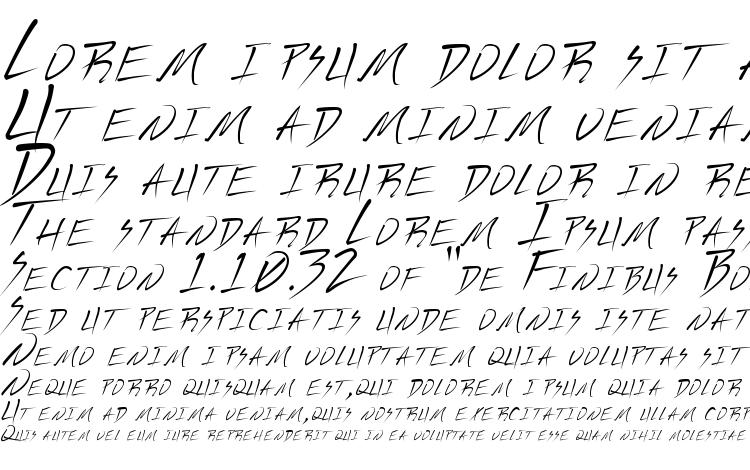 Lorem ipsum dolor sit a
Ut enim ad minim venia
Duis aute irure dolor in re
The standard Lorem Ipsum pas
Section 1.10.32 of "de Finibus Bo
Sed ut perspiciatis unde omnis iste nat
Nemo enim ipsam voluptatem quia voluptas sit
Neque porro quisquam est,qui dolorem ipsum quia dolor
Ut enim ad minima veniam,quis nostrum exercitationem ullam corp
Quis autem vel eum iure reprehenderit qui in ea voluptate velit esse quam nihil molestiae